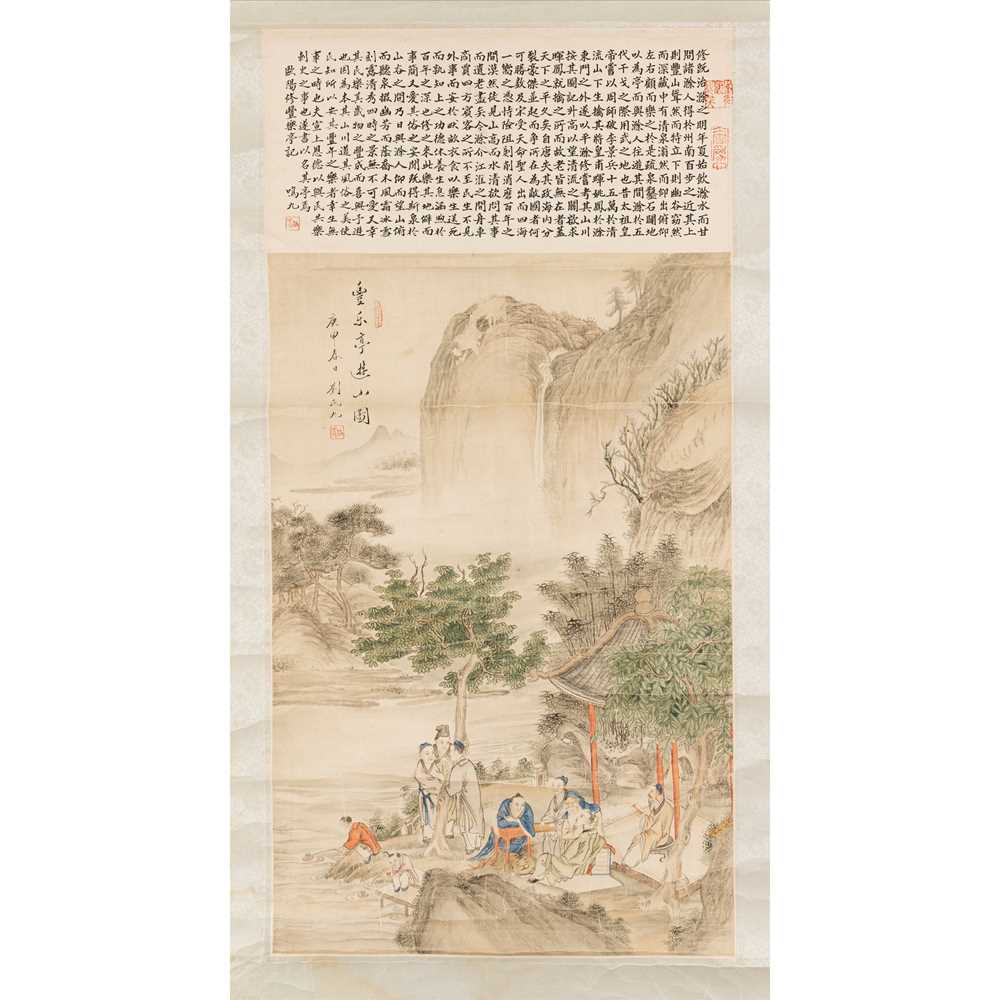 修既治滁之明年夏始飲滁水而甘
問諸滁人得於州南百步之近其上
則豐山聳然而特立下則幽谷窈然
而深藏中有清泉滃然而仰出俯仰
左右顧而樂之於是疏泉鑿石闢地
以為亭而與滁人往遊其間滁於五
代干戈之際用武之地也昔太祖皇
帝嘗以周師破李景兵十五萬於清
流山下生擒其將皇甫暉姚鳳於滁
東門之外遂以平滁修嘗考其山川
按其圖記升高以望清流之關欲求
暉鳳就擒之所而故老皆無在者蓋
天下之平久矣自唐失其政海內分
裂豪傑並起而爭所在為敵國者何
可勝數及宋受天命聖人出而四海
一嚮之憑恃險阻剗削消磨百年之
間漠然徒見山高而水清欲問其事
而遺老盡矣今滁介江淮之間舟車
商賈四方賓客之所不至民生不見
外事而安於畎畝衣食以樂生送死
而孰知上之功德休養生息涵煦於
百年之深也修之來此樂其地僻而
事簡又愛其俗之安閒既得斯泉於
山谷之間乃日與滁人仰而望山俯
而聽泉掇幽芳而蔭喬木風霜冰雪
刻露清秀四時之景無不可愛又幸
其民樂其歲物之豐成而喜與予遊
也因為本其山川道其風俗之美使
民知所以安其豐年之樂者幸生無
事之時也夫宣上恩德以與民共樂
刺史之事也遂書以名其亭焉
歐陽修豐樂亭記 鳴九
豐乐亭遊山圖
庚申春日劉鳴九